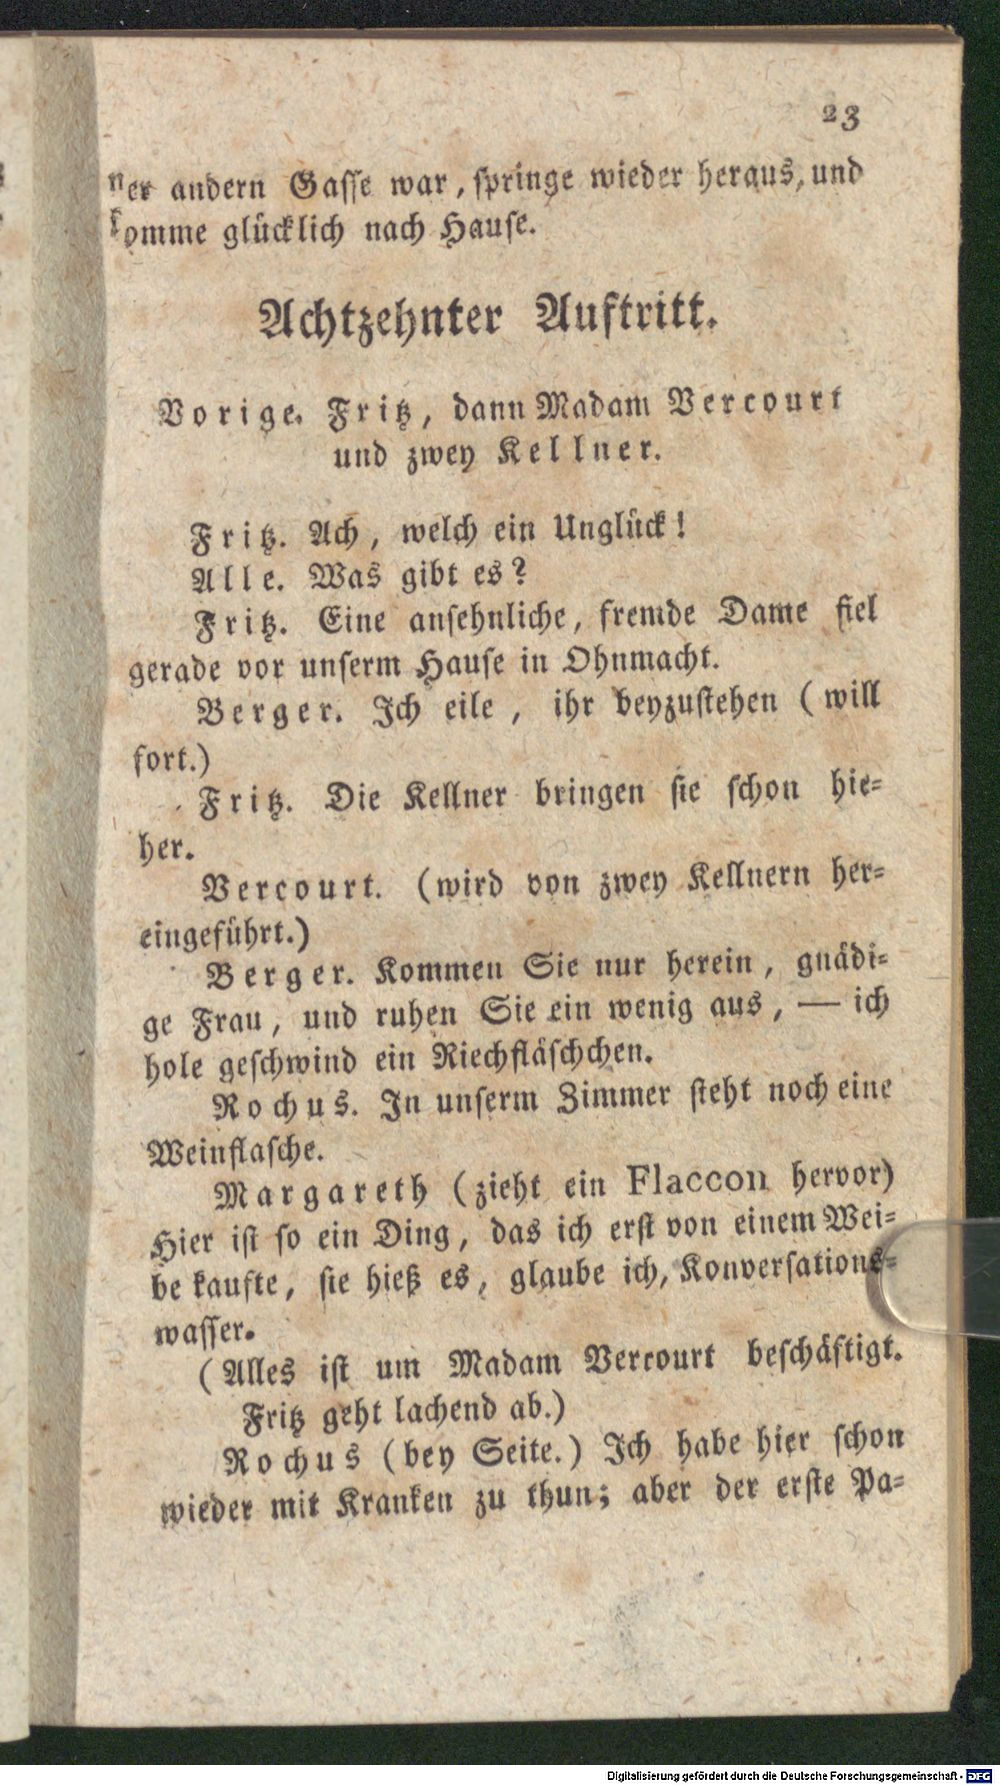 23
ner andern Gasse war, springe wieder heraus, und
komme glücklich nach Hause.
Achtzehnter Auftritt.
Vorige. Fritz, dann Madam Vercourt
und zwey Kellner.
Fritz. Ach, welch ein Unglück!
Alle. Was gibt es?
Fritz. Eine ansehnliche, fremde Dame fiel
gerade vor unserm Hause in Ohnmacht.
Berger. Ich eile, ihr beyzustehen (will
fort.)
Fritz. Die Kellner bringen sie schon hie-
her.
Vercourt. (wird von zwey Kellnern her-
eingeführt.)
Berger. Kommen Sie nur herein, gnädi-
ge Frau, und ruhen Sie ein wenig aus, — ich
hole geschwind ein Riechfläschchen.
Rochus. In unserm Zimmer steht noch eine
Weinflasche.
Margareth (zieht ein Flaccon hervor)
Hier ist so ein Ding, das ich erst von einem Wei-
be kaufte, sie hieß es, glaube ich, Konversations-
wasser.
(Alles ist um Madam Vercourt beschäftigt.
Fritz geht lachend ab.)
Rochus (bey Seite.) Ich habe hier schon
wieder mit Kranken zu thun; aber der erste Pa-
Digitalisierung gefördert durch die Deutsche Forschungsgemeinschaft - DFG